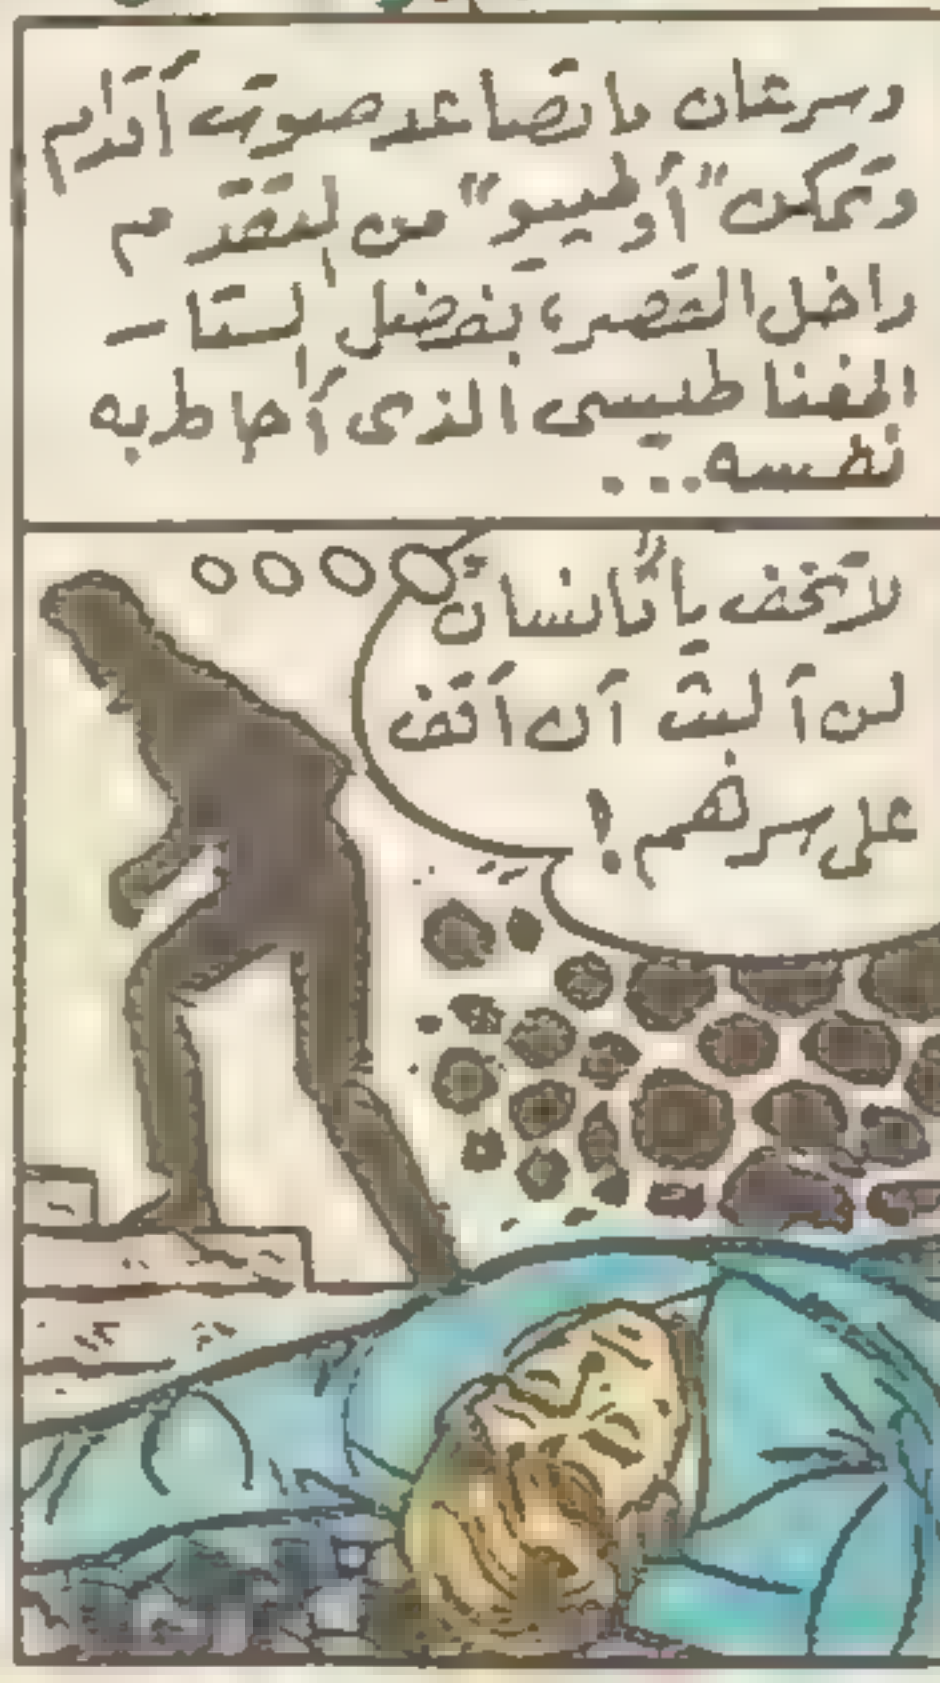 وسرعان ما تصاعد صوت أقدام
وتمكن "أوطيبو" من التقدم
داخل القصر، بفضل الستار
المغناطيسى الذى أحاط به
نفسه...
لا تخف يا تانسان
لن ألبث أن أقف
على سرهم!